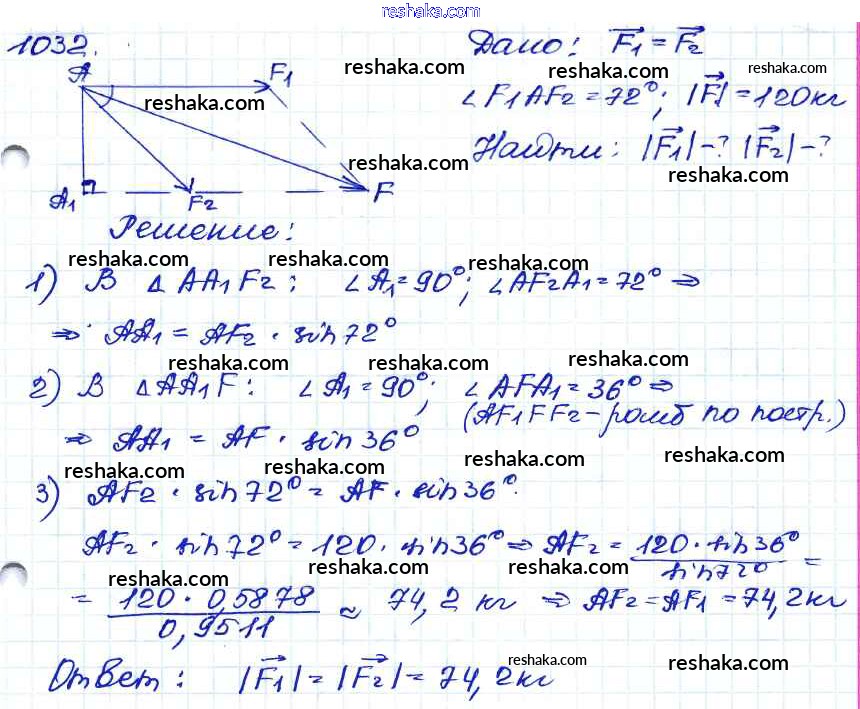 reshaka.com
1032.
Дано: F₁ = F₂
A F₁
reshaka.com reshaka.com
reshaka.com
∠F1AF2 = 72°; |F| = 120кг
reshaka.com
Найти: |F₁| - ? |F₂| - ?
reshaka.com reshaka.com
A₁ F₂ F
Решение:
reshaka.com reshaka.com reshaka.com
1) В △AA₁F₂: ∠A₁ = 90°; ∠AF₂A₁ = 72° ⇒
⇒ AA₁ = AF₂ · sin 72°
reshaka.com reshaka.com reshaka.com
2) В △AA₁F: ∠A₁ = 90°; ∠AFA₁ = 36° ⇒
(AF₁FF₂ - ромб по постр.)
⇒ AA₁ = AF · sin 36°
reshaka.com reshaka.com reshaka.com
3) AF₂ · sin 72° = AF · sin 36°.
AF₂ · sin 72° = 120 · sin 36° ⇒ AF₂ = 120 · sin 36° / sin 72° =
reshaka.com reshaka.com reshaka.com
= 120 · 0,5878 / 0,9511 ≈ 74,2 кг ⇒ AF₂ = AF₁ = 74,2 кг
reshaka.com reshaka.com reshaka.com
Ответ: |F₁| = |F₂| = 74,2 кг